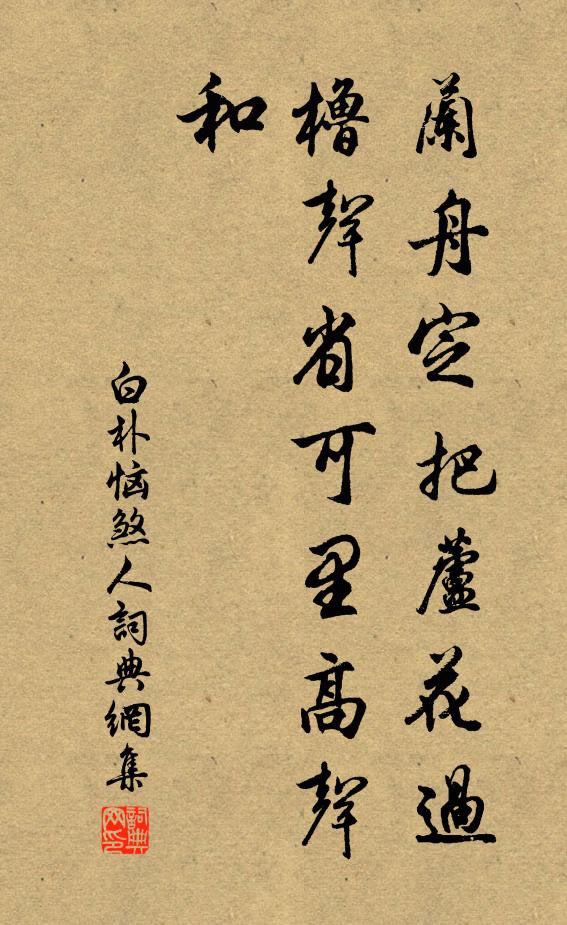 蘭舟定把蘆花過
櫓聲省可里高聲
和
白朴惱煞人詞典網集
詞典网印